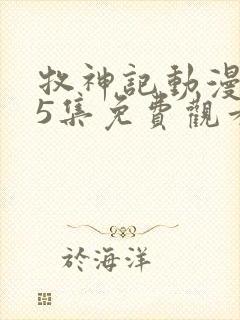 牧神記動漫
5集免費觀
於海洋